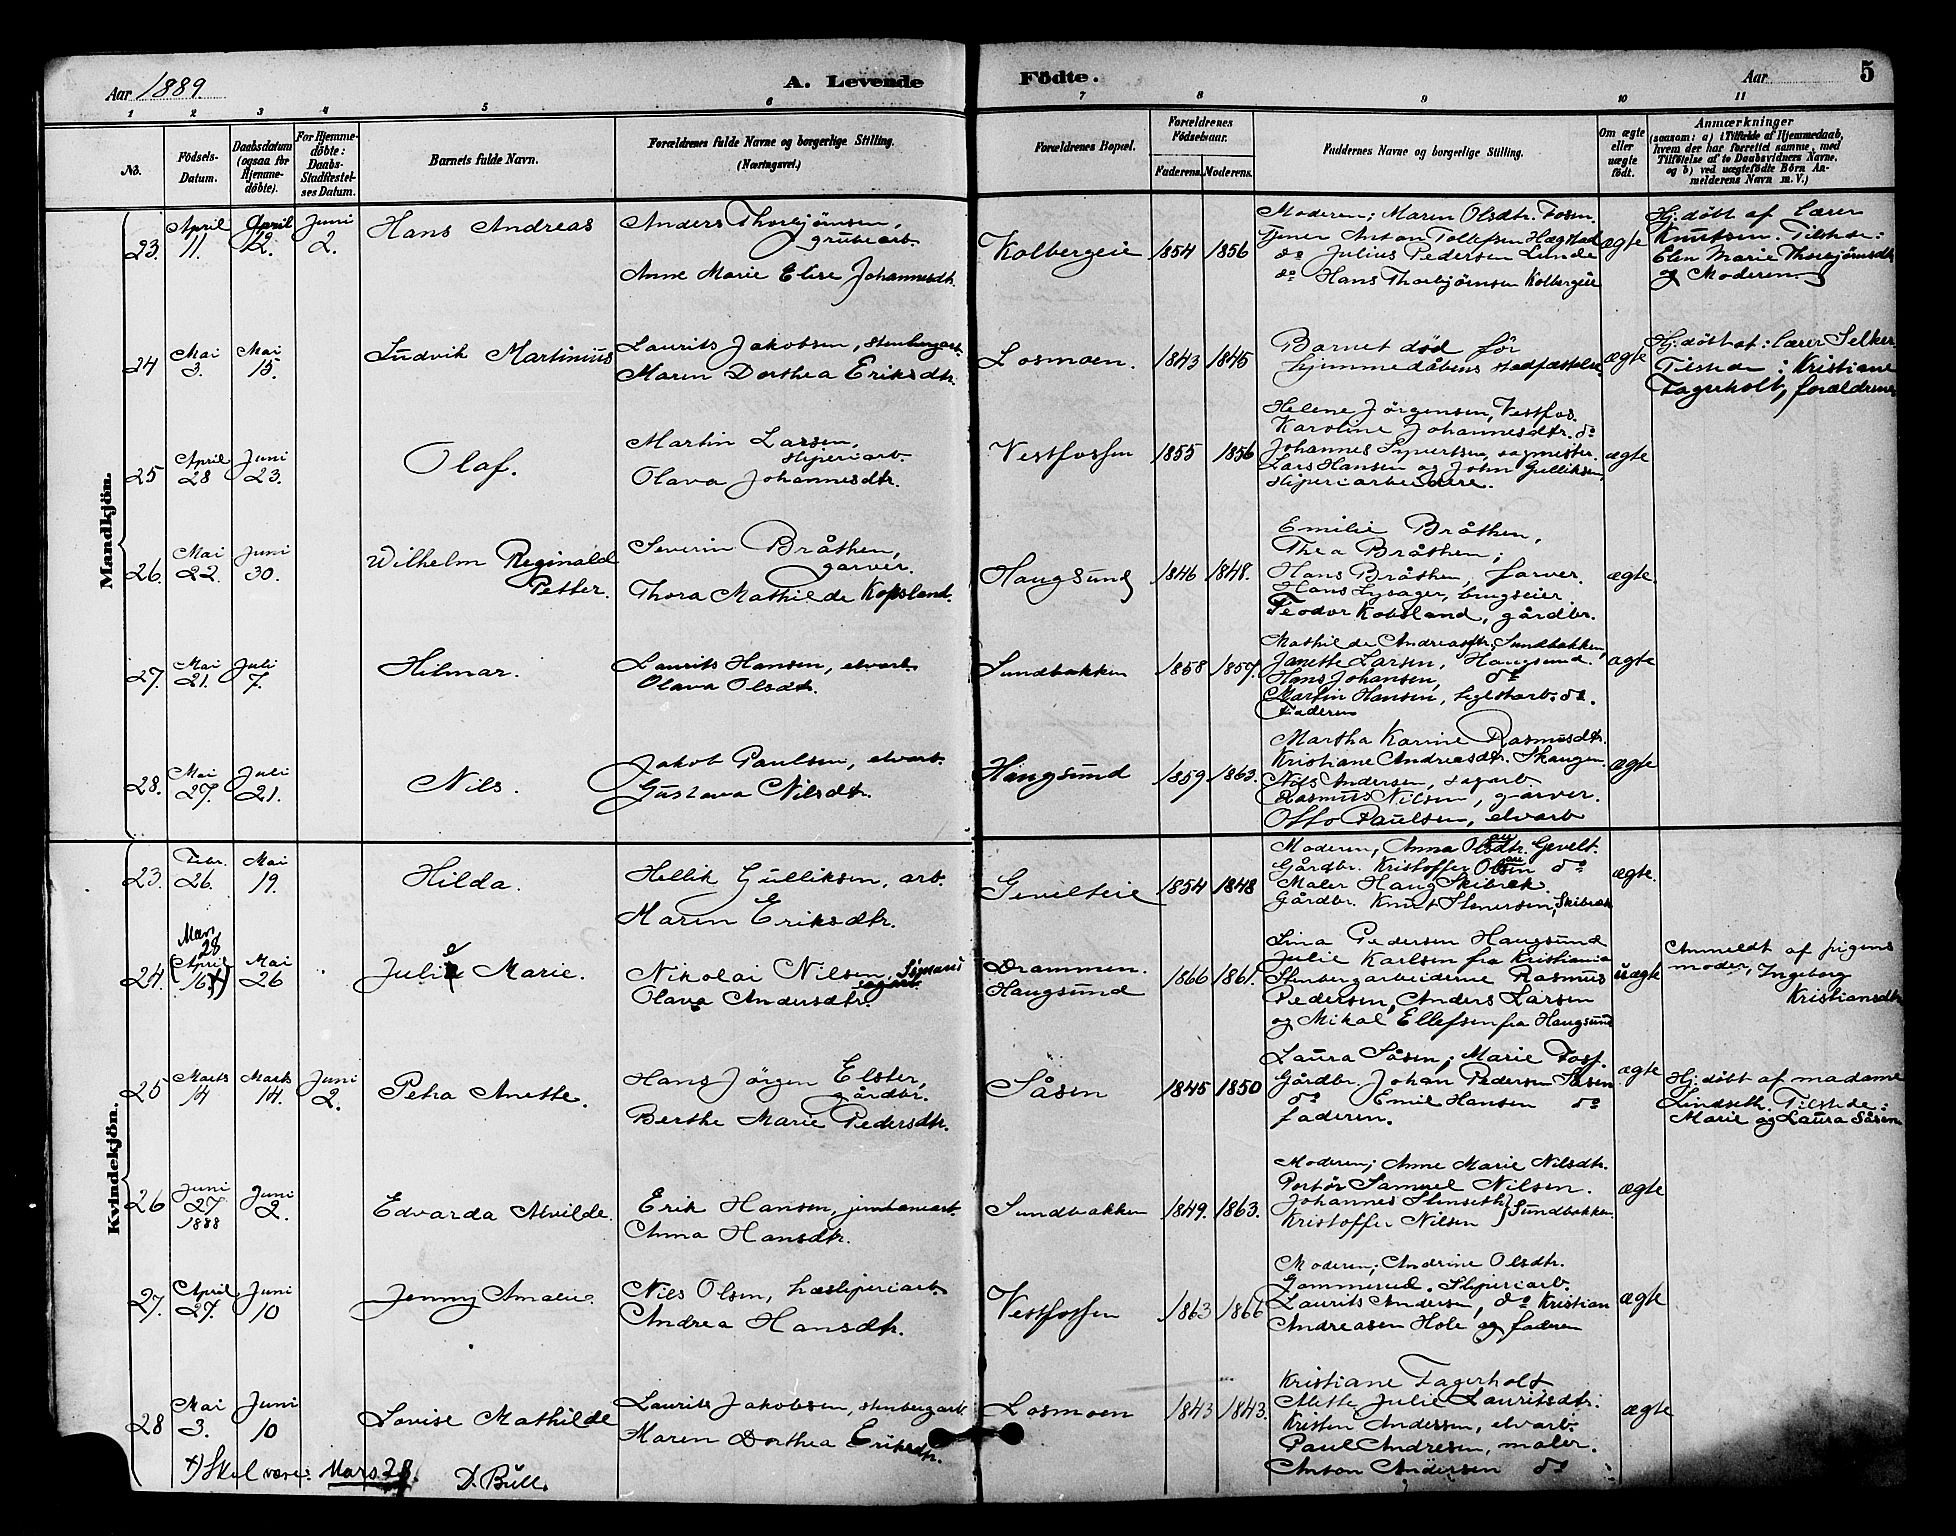 Aar 1889.
A. Levende Födte.
Aar
5
1 2 3 4 5 6 7 8 9 10 11
No.
Födsels-Datum.
Daabsdatum (ogsaa for Hjemme-döbte).
For Hjemme-döbte: Daabs-Stadfæstel-ses Datum.
Barnets fulde Navn.
Forældrenes fulde Navne og borgerlige Stilling.
(Næringsvei.)
Forældrenes Bopæl.
Forældrenes Födselsaar.
Faderens. Moderens.
Faddernes Navne og borgerlige Stilling.
Om ægte eller uægte födt.
Anmærkninger
(saasom: a) i Tilfælde af Hjemmedaab, hvem der har forrettet samme, med Tilföielse af to Daabsvidners Navne, og b) ved uægtefödte Börn An-melderens Navn m. V.)
Mandkjön.
23. April 11. April 12. Juni 2.
Hans Andreas
Anders Thorbjørnsen, grubearb.
Anne Marie Elise Johannesdtr.
Kolbergeie
1854 1856
Moderen; Maren Olsdtr. Fosen.
Tjener Anton Tollefsen Hægstad
do Julius Pedersen Lunde
do Hans Thorbjørnsen Kolbergeie
ægte
Hj. døbt af lærer
Knutsen. Tilstede:
Elen Marie Thorbjørnsdtr
og Moderen
24 Mai 3. Mai 15.
Ludvik Martinius
Laurits Jakobsen, stenbergarb.
Maren Dorthea Eriksdtr.
Losmoen.
1843 1845
Barnet død før
hjemmedåbens stadfæstelse
ægte
Hj. døbt af: lærer Selker.
Tilstede: Kristiane
Fagerholt, forældrene
25 April 28 Juni 23.
Olaf.
Martin Larsen, sliperiarb.
Olava Johannesdtr.
Vestfossen
1855 1856
Helene Jørgensen, Vestfos.
Karoline Johannesdtr. do
Johannes Syvertsen, sagmester.
Lars Hansen og John Gulliksen,
sliperiarbeidere.
ægte
26. Mai 22. Juni 30.
Wilhelm Reginald
Petter.
Severin Bråthen, garver.
Thora Mathilde Kopsland.
Haugsund
1846 1848.
Emilie Bråthen,
Thea Bråthen;
Hans Bråthen, farver.
Hans Lysager, brugseier
Teodor Kobsland, gårdbr.
ægte.
27. Mai 21. Juli 7.
Hilmar.
Laurits Hansen, elvarb.
Olava Olsdtr.
Sundbakken
1858 1857.
Mathilde Andreasdtr. Sundbakken,
Janette Larsen, Haugsund.
Hans Johansen, do
Martin Hansen, teglstarb. do.
Faderen
ægte
28. Mai 27. Juli 21.
Nils.
Jakob Paulsen, elvarb.
Gustava Nilsdtr.
Haugsund
1859 1863.
Martha Karine Rasmusdtr.
Kristiane Andreasdtr. Skaugen.
Nils Andersen, sagarb
Rasmus Nilsen, garver.
Otto Paulsen, elvarb
ægte
Kvindekjön.
23. Febr. 26. Mai 19.
Hilda.
Hellik Gulliksen, arb.
Maren Eriksdtr.
Gevelteie
1854 1848
Moderen, Anna Olsdtr. Gevelt.
Gårdbr. Kristoffer Olsen do
Maler Haug Skibrek
Gårdbr. Knut Stenersen, Skibrek
ægte.
24. Mars 28 (April 16 x) Mai 26
Julie Marie.
Nikolai Nilsen,
Olava Andersdtr.
Drammen.
Haugsund
1866 1861.
Lina Pedersen Haugsund
Julie Karlsen fra Kristiania
Stenbergarbeiderne Rasmus
Pedersen, Anders Larsen
og Mikal Ellefsen fra Haugsund
uægte
Anmeldt af pigens
moder, Ingeborg
Kristiansdtr
25 Marts 14 Marts 14. Juni 2.
Petra Anette.
Hans Jørgen Elster, gårdbr.
Berthe Marie Pedersdtr.
Såsen
1845 1850
Laura Såsen; Marie Fosf.
Gårdbr. Johan Pedersen Såsen
do Emil Hansen do
faderen.
ægte
Hj. døbt af madame
Lindseth. Tilstede:
Marie og Laura Såsen
26 Juni 27 1888 Juni 2.
Edvarda Alvilde.
Erik Hansen, jernbanearb.
Anna Hansdtr.
Sundbakken
1849. 1863.
Moderen; Anne Marie Nilsdtr.
Portør Samuel Nilsen.
Johannes Stenseth } Sundbakken
Kristoffer Nilsen
ægte
27. April 27. Juni 10
Jenny Amalie.
Nils Olsen, træsliperiarb.
Andrea Hansdtr.
Vestfossen
1863 1866
Moderen; Andrine Olsdtr.
Gommerud. Sliperiarb.
Laurits Andersen, do Kristian
Andreasen Hole og faderen
ægte
28 Mai 3. Juni 10
Lovise Mathilde
Laurits Jakobsen, stenbergarb.
Maren Dorthea Eriksdtr.
Losmoen
1843 1843.
Kristiane Fagerholt
Mette Julie Lauritsdtr.
Kristen Andersen, elvarb.
Paul Andresen, maler.
Anton Andersen do
ægte
x) Skal være: Mars 28. D. Bull.